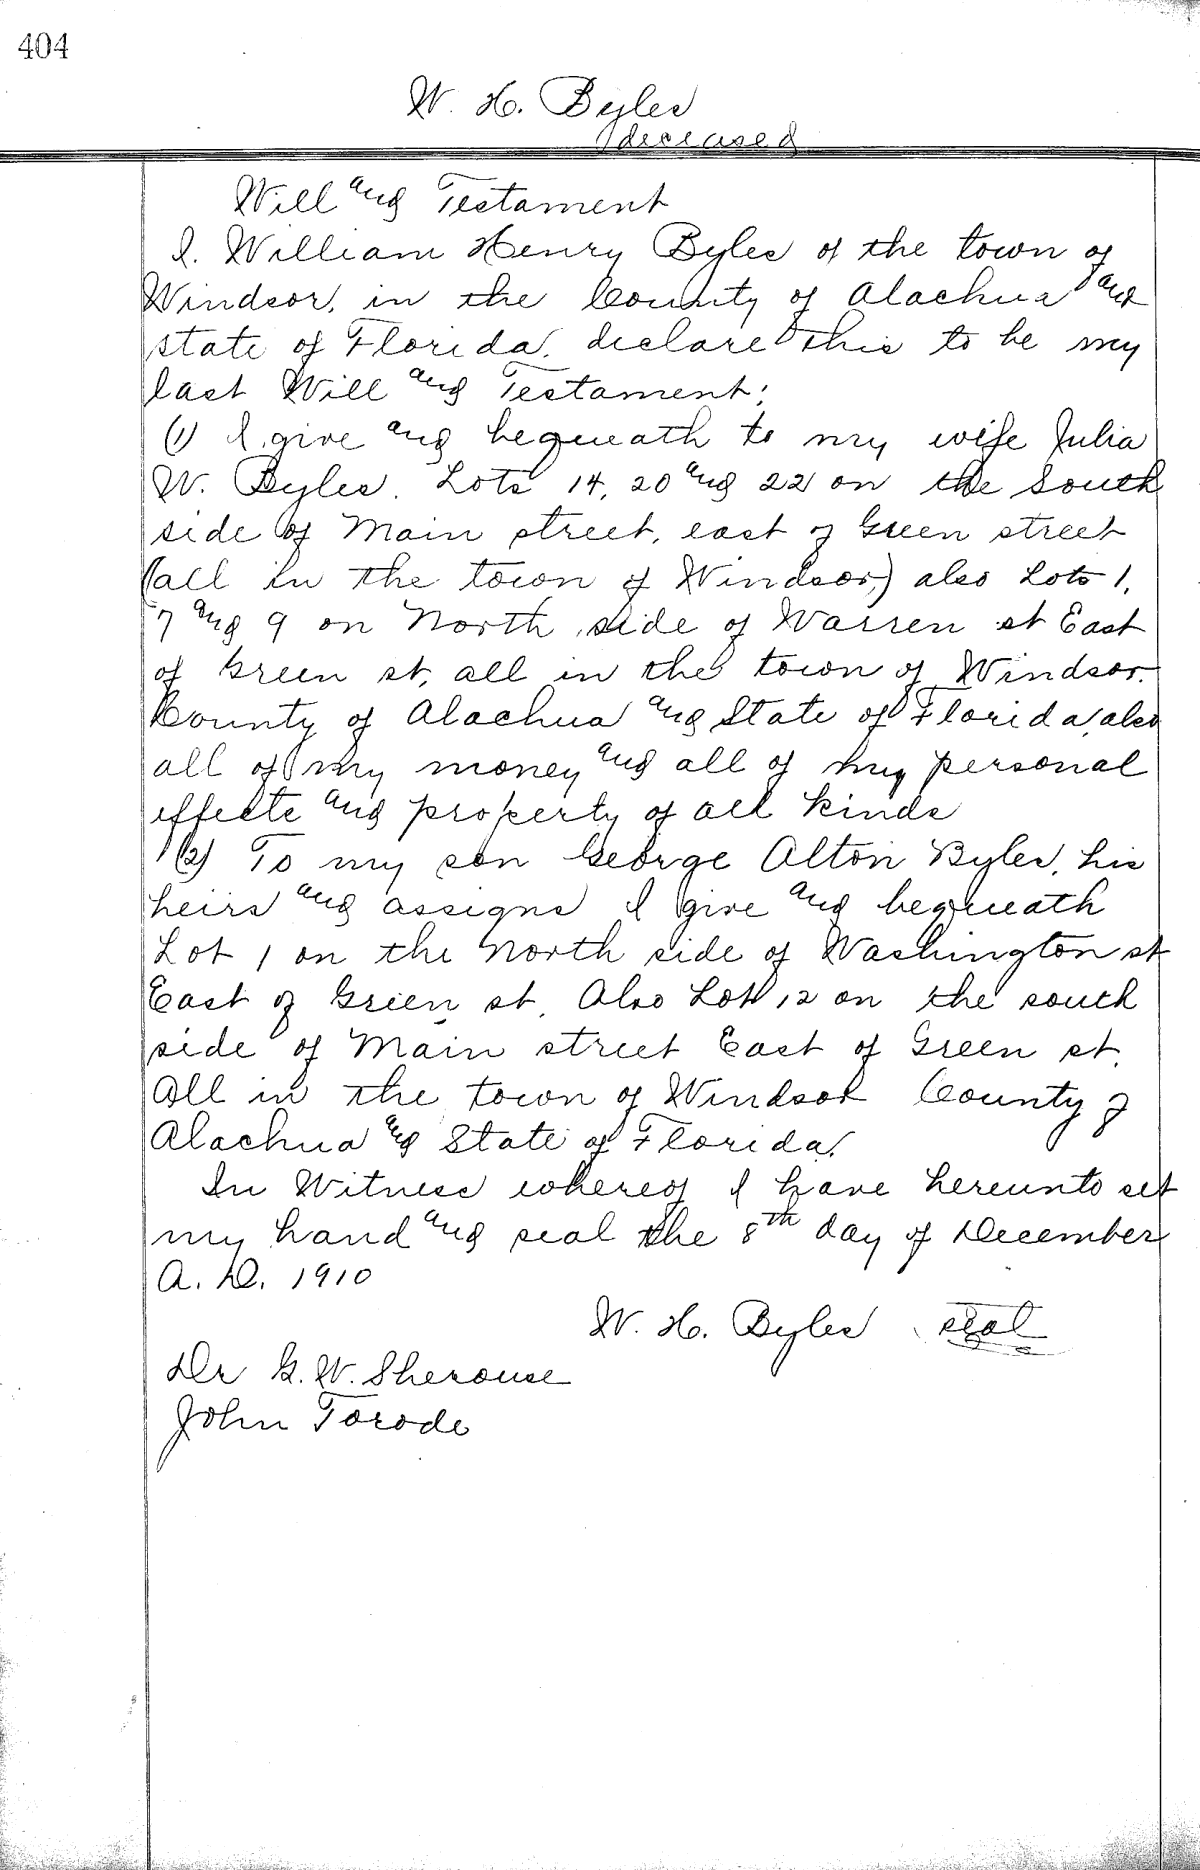 404
W. H. Byles
deceased
Will and Testament
I. William Henry Byles of the town of
Windsor, in the County of Alachua and
state of Florida, declare this to be my
last Will and Testament:
(1) I give and bequeath to my wife Julia
W. Byles. Lots 14, 20 and 22 on the South
side of Main street, east of Green street
(all in the town of Windsor,) also Lots 1,
7 and 9 on North side of Warren st East
of Green st, all in the town of Windsor.
County of Alachua and State of Florida, also
all of my money and all of my personal
effects and property of all kinds
(2) To my son George Alton Byles, his
heirs and assigns I give and bequeath
Lot 1 on the North side of Washington st
East of Green st. Also Lot 12 on the south
side of Main street East of Green st.
All in the town of Windsor County of
Alachua and State of Florida.
In Witness whereof I have hereunto set
my hand and seal the 8th day of December
A. D. 1910
W. H. Byles seal
Dr G. W. Sherouse
John Torode